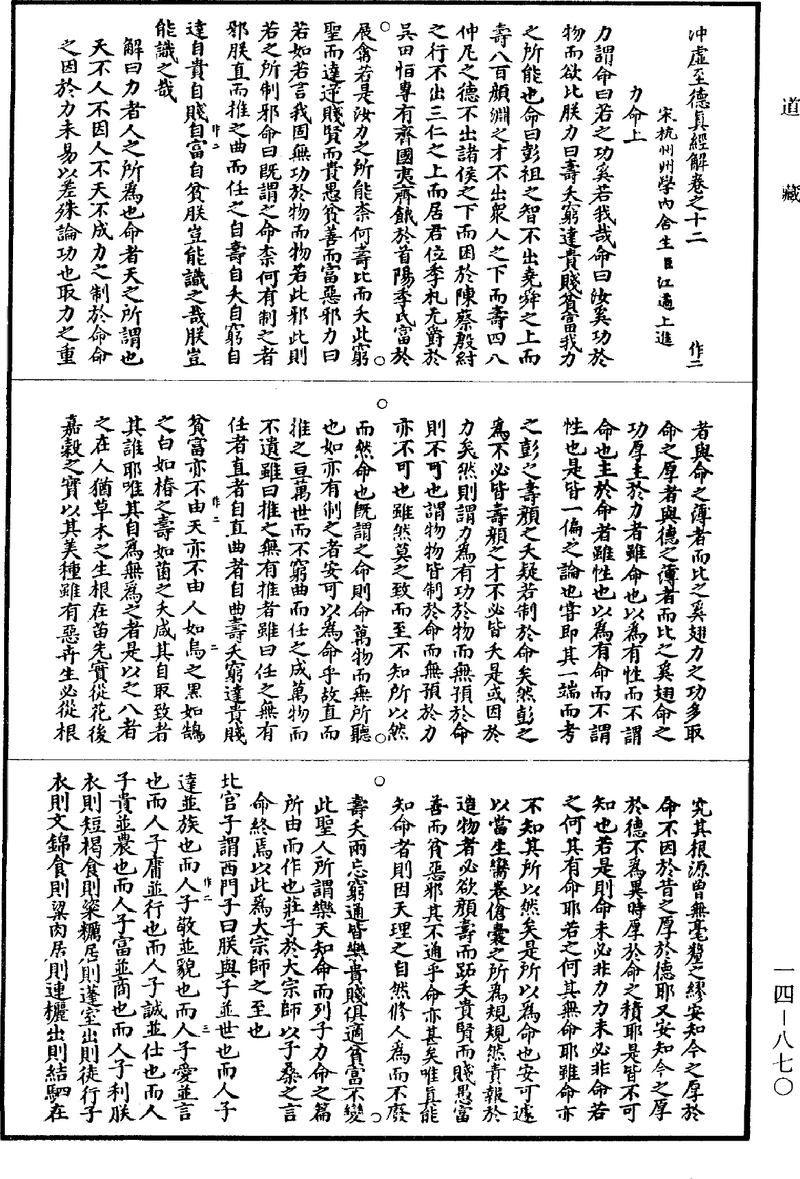 道藏
冲虛至德真經解卷之十二 作二
宋杭州州學內舍生臣江遹上進
力命上
力謂命曰若之功奚若我哉命曰汝奚功於
物而欲比朕力曰壽夭窮達貴賤貧富我力
之所能也命曰彭祖之智不出堯舜之上而
壽八百顏淵之才不出衆人之下而壽四八
仲尼之德不出諸侯之下而困於陳蔡殷紂
之行不出三仁之上而居君位季札无爵於
吳田恒專有齊國夷齊餓於首陽季氏富於
展禽若是汝力之所能柰何壽比而夭此窮
聖而達逆賤賢而貴愚貧善而富惡邪力曰
若如若言我固無功於物而物若此邪此則
若之所制邪命曰既謂之命柰何有制之者
邪朕直而推之曲而任之自壽自夭自窮自
達自貴自賤自富自貧朕豈能識之哉朕豈
能識之哉
解曰力者人之所為也命者天之所謂也
天不人不因人不天不成力之制於命命
之因於力未易以差殊論功也取力之重
者與命之薄者而比之奚翅力之功多取
命之厚者與德之薄者而比之奚翅命之
功厚主於力者雖命也以為有性而不謂
命也主於命者雖性也以為有命而不謂
性也是皆一偏之論也嘗即其一端而考
之彭之壽顏之夭疑若制於命矣然彭之
為不必皆壽顏之才不必皆夭是或因於
力矣然則謂力為有功於物而無預於命
則不可也謂物物皆制於命而無預於力
亦不可也雖然莫之致而至不知所以然
而然命也既謂之命則命萬物而無所聽
也如亦有制之者安可以為命乎故直而
推之亘萬世而不窮曲而任之成萬物而
不遺雖曰推之無有推者雖曰任之無有
任者直者自直曲者自曲壽夭窮達貴賤
貧富亦不由天亦不由人如烏之黑如鵠
之白如椿之壽如菌之夭咸其自取致者
其誰耶唯其自為無為之者是以之八者
之在人猶草木之生根在苗先實從花後
嘉穀之實以其美種雖有惡卉生必從根
究其根源曾無毫釐之繆安知今之厚於
命不因於昔之厚於德耶又安知今之厚
於德不為異時厚於命之積耶是皆不可
知也若是則命未必非力力未必非命若
之何其有命耶若之何其無命耶雖命亦
不知其所以然矣是所以為命也安可遽
以當生臠卷傖囊之所為規規然責報於
造物者必欲顏壽而跖夭貴賢而賤愚富
善而貧惡邪其不通乎命亦甚矣唯真能
知命者則因天理之自然修人為而不廢
壽夭兩忘窮通皆樂貴賤俱適貧富不變
此聖人所謂樂天知命而列子力命之篇
所由而作也莊子於大宗師以子桑之言
命終焉以此為大宗師之至也
北宮子謂西門子曰朕與子並世也而人子
達並族也而人子敬並貌也而人子愛並言
也而人子庸並行也而人子誠並仕也而人
子貴並農也而人子富並商也而人子利朕
衣則裋褐食則粢糲居則蓬室出則徒行子
衣則文錦食則粱肉居則連欐出則結駟在
一四—八七〇